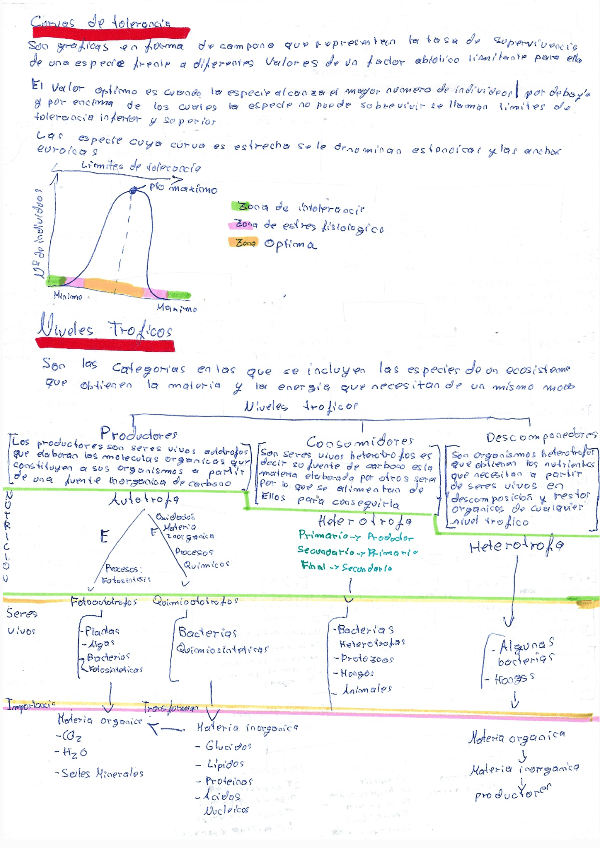 Curvas de tolerancia
Son graficas en forma de campana que representan la tasa de supervivencia
de una especie frente a diferentes valores de un factor abiotico limitante para ella
El valor optimo es cuando la especie alcanza el mayor numero de individuos, por debajo
y por encima de los cuales la especie no puede sobrevivir se llaman limites de
tolerancia inferior y superior
Las especie cuya curva es estrecha se le denominan estenoicas y las anchas
eurioicas
Limites de tolerancia
Pto maximo
Nº de individuos
Zona de intolerancia
Zona de estres fisiologico
Zona Optima
Minimo
Maximo
Niveles Troficos
Son las categorias en las que se incluyen las especies de un ecosistema
que obtienen la materia y la energia que necesitan de un mismo modo
Niveles troficos
Productores
Los productores son seres vivos autotrofos
que elaboran las moleculas organicas que
constituyen a sus organismos a partir
de una fuente inorganica de carbono
Consumidores
Son seres vivos heterotrofos es
decir su fuente de carbono es la
materia elaborada por otros seres
por lo que se alimentan de
Ellos para conseguirla
Descomponedores
Son organismos heterotrofos
que obtienen los nutrientes
que necesitan a partir
de seres vivos en
descomposicion y restos
organicos de cualquier
nivel trofico
NUTRICION
Autotrofa
E
Procesos:
Fotosintesis
E
Oxidados
Materia
Inorganica
Procesos
Quimicos
Heterotrofa
Primario → Productor
Secundario → Primario
Final → Secundario
Heterotrofa
Seres
vivos
Fotoautotrofos
- Plantas
- Algas
- Bacterias
Fotosinteticas
Quimioautotrofos
Bacterias
Quimiosinteticas
- Bacterias
Heterotrofas
- Protozoos
- Hongos
- Animales
- Algunas
bacterias
- Hongos
Importancia
Transforman
Materia organica
- CO2
- H2O
- Sales Minerales
Materia inorganica
- Glucidos
- Lipidos
- Proteinas
- Acidos
Nucleicos
Materia organica
Materia inorganica
productores